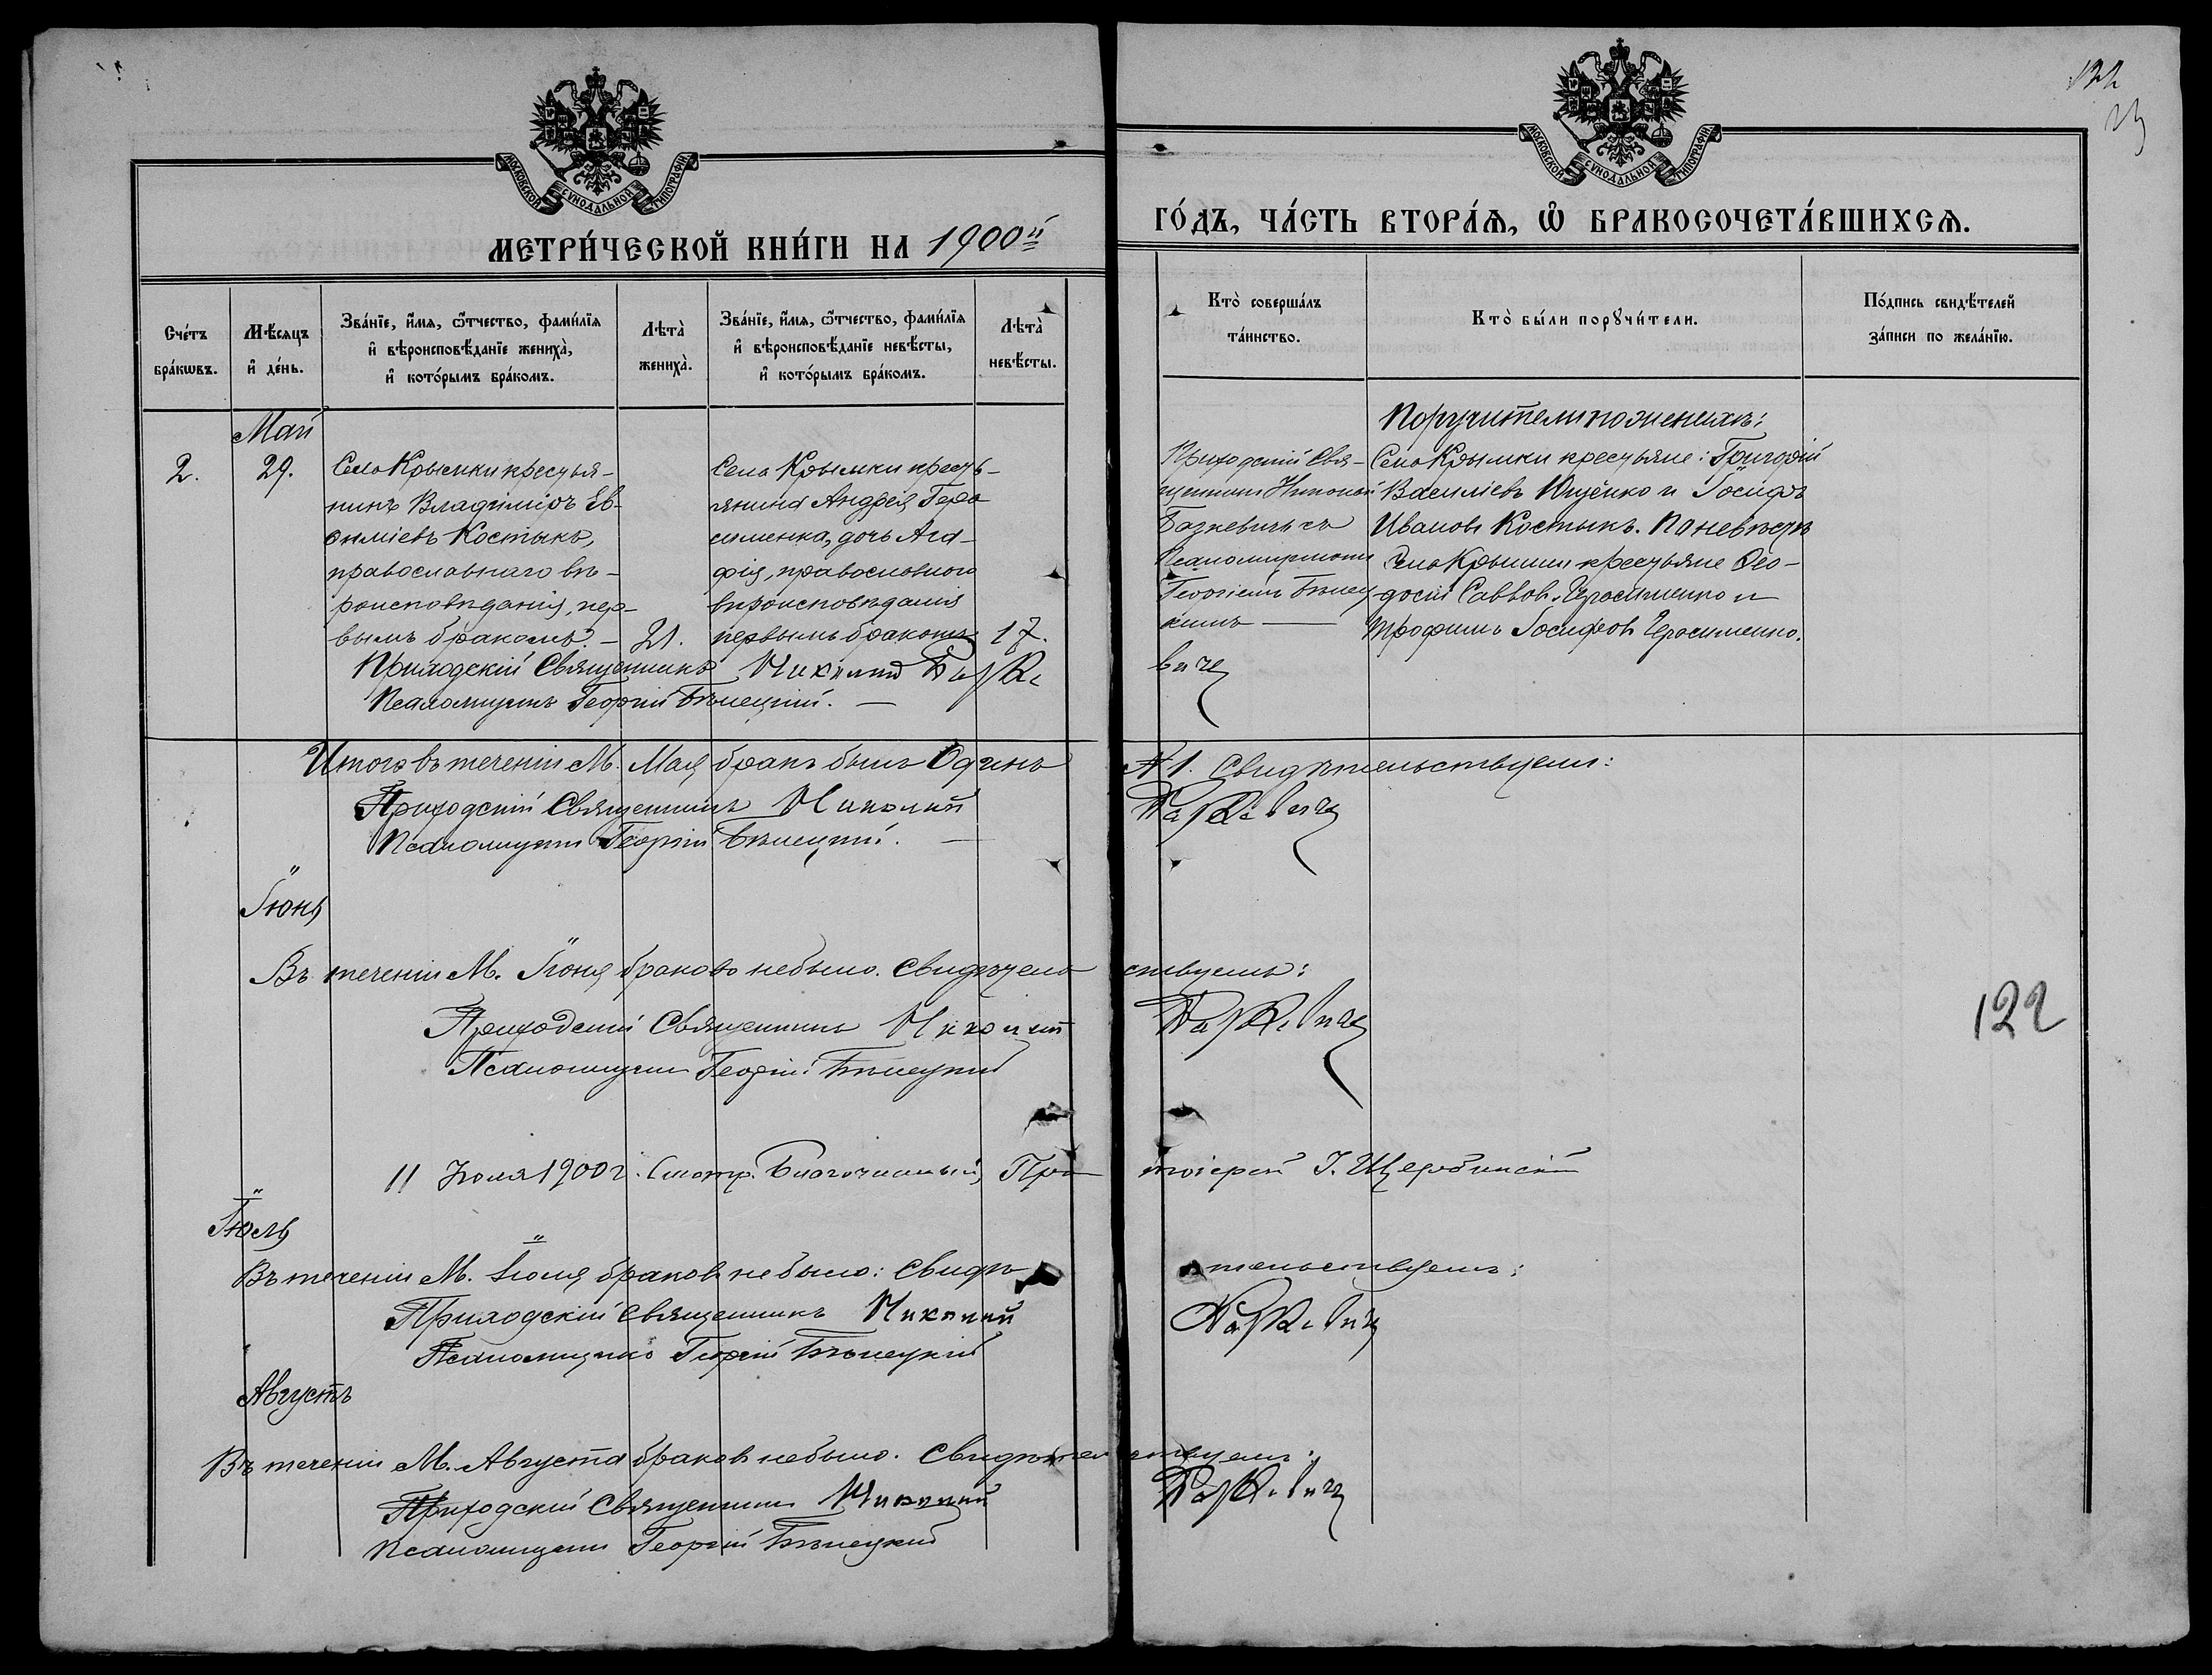 122
23
МОСКОВСКОЙ СѴНОДАЛЬНОЙ ТИПОГРАФІИ
МОСКОВСКОЙ СѴНОДАЛЬНОЙ ТИПОГРАФІИ
МЕТРИ́ЧЕСКОЙ КНИ́ГИ НА 1900й
ГО́ДЪ, ЧА́СТЬ ВТОРА́Ѧ, Ѽ БРАКОСОЧЕТА́ВШИХСѦ.
Сче́тъ
бра́кѡвъ.
Мѣ́сяцъ
и҆ де́нь.
Зва́нїе, и҆́мя, ѻ҆́тчество, фами́лїя
и҆ вѣроисповѣ́данїе жениха̀,
и҆ кото́рымъ бра́комъ.
Лѣта̀
жениха̀.
Зва́нїе, и҆́мя, ѻ҆́тчество, фами́лїя
и҆ вѣроисповѣ́данїе невѣ́сты,
и҆ кото́рымъ бра́комъ.
Лѣта̀
невѣ́сты.
Кто̀ соверша́лъ
та́инство.
Кто̀ бы́ли порꙋчи́тели.
По́дпись свидѣ́телей
за́писи по жела́нїю.
Май
2.
29.
Села Крымки крестья-
нинъ Владиміръ Ев-
ѳиміевъ Костыкъ,
православнаго вѣ-
роисповѣданія, пер-
вымъ бракомъ. –
21.
Села Крымки кресть-
янина Андрея Гера-
сименка, дочь Ага-
фія, православного
вѣроисповѣданія
первымъ бракомъ
17.
Приходскій Свя-
щенникъ Николай
Базкевичъ съ
Псаломщикомъ
Георгіемъ Бѣлец-
кимъ —
Поручители по женихѣ:
Села Крымки крестьяне: Григорій
Василіевъ Ющенко и Іосифъ
Ивановъ Костыкъ. По невѣстѣ
Села Крымки крестьяне Ѳео-
досій Саввовъ Герасименко и
Трофимъ Іосифовъ Герасименко.
Приходскій Священникъ Николай Базке
вичъ
Псаломщикъ Георгій Бѣлецкій. —
Итого въ теченіи М. Мая бракъ былъ Одинъ
№ 1. Свидѣтельствуемъ:
Приходскій Священникъ Николай
Базкевичъ
Псаломщикъ Георгій Бѣлецкій. —
Іюнь
Въ теченіи М. Іюня браковъ небыло. Свидѣтель
ствуемъ:
Приходскій Священникъ Николай
Базкевичъ
Псаломщикъ Георгій Бѣлецкій
122
11 Іюля 1900 г. Смотр. Благочинный, Про
тоіерей І. Щербинскій
Іюль
Въ теченіи М. Іюля браковъ небыло: Свидѣ
тельствуемъ:
Приходскій Священникъ Николай
Базкевичъ
Псаломщикъ Георгій Бѣлецкій
Августъ
Въ теченіи М. Августа браковъ небыло. Свидѣтель
ствуемъ:
Приходскій Священникъ Николай
Базкевичъ
Псаломщикъ Георгій Бѣлецкій